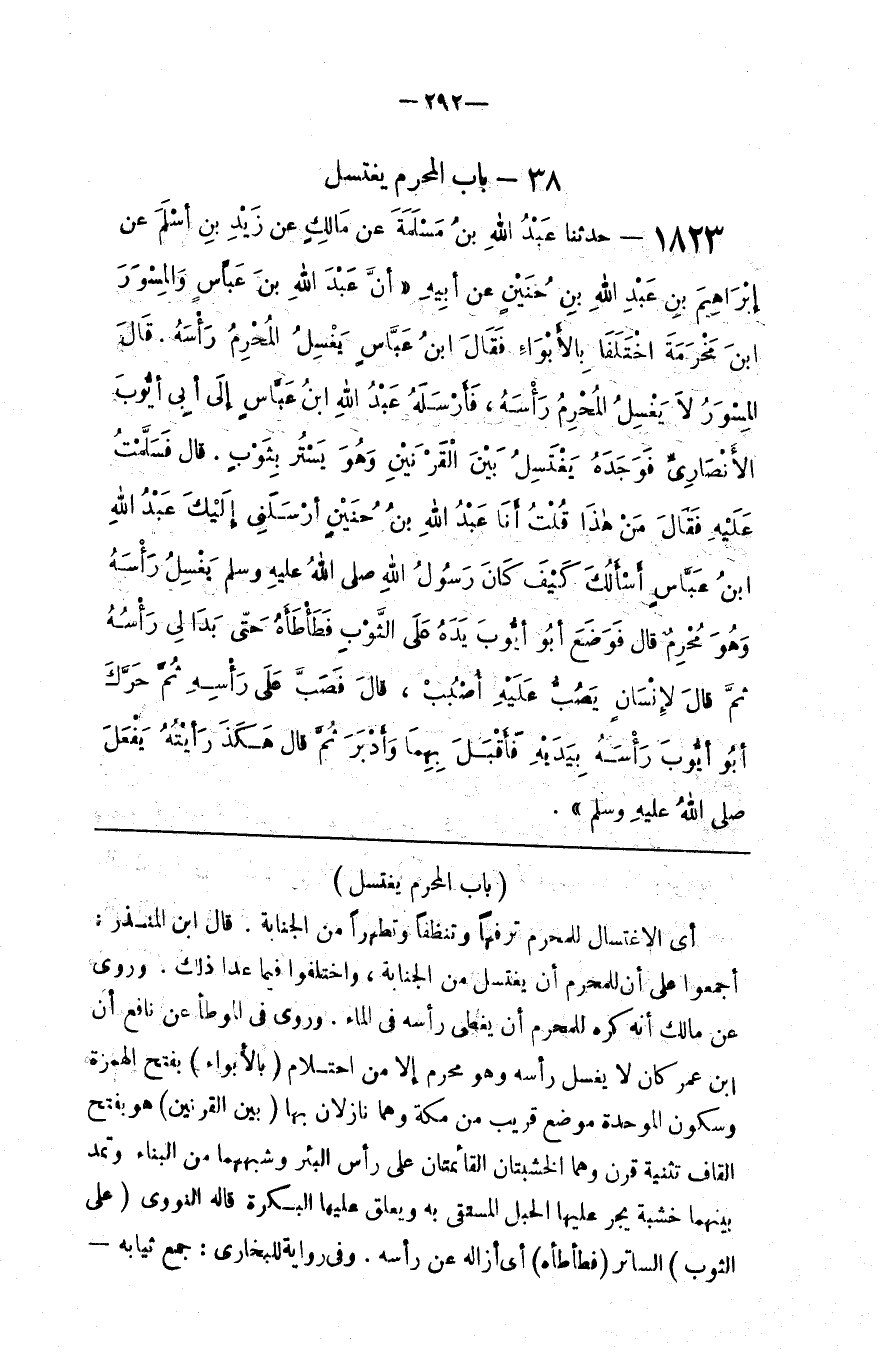 —٢٩٢—
٣٨ — باب المحرم يغتسل
١٨٢٣ — حدثنا عَبْدُ اللهِ بنُ مَسْلَمَةَ عن مَالِكٍ عن زَيْدِ بنِ أسْلَمَ عن
إبْرَاهِيمَ بنِ عَبْدِ اللهِ بنِ حُنَيْنٍ عن أبِيهِ «أنَّ عَبْدَ اللهِ بنَ عَبَّاسٍ وَالمِسْوَرَ
ابنَ مَخْرَمَةَ اخْتَلَفَا بِالأَبْوَاءِ فَقَالَ ابنُ عَبَّاسٍ يَغْسِلُ المُحْرِمُ رَأْسَهُ . قَالَ
المِسْوَرُ لاَ يَغْسِلُ المُحْرِمُ رَأْسَهُ ، فَأَرْسَلَهُ عَبْدُ اللهِ ابنُ عَبَّاسٍ إلَى أبِى أيُّوبَ
الأَنْصَارِىِّ فَوَجَدَهُ يَغْتَسِلُ بَيْنَ الْقَرْنَيْنِ وَهُوَ يَسْتُر بِثَوْبٍ . قال فَسَلَّمْتُ
عَلَيْهِ فَقَالَ مَنْ هٰذَا قُلْتُ أنَا عَبْدُ اللهِ بنُ حُنَيْنٍ أرْسَلَنِى إلَيْكَ عَبْدُ اللهِ
ابنُ عَبَّاسٍ أسْأَلُكَ كَيْفَ كَانَ رَسُولُ اللهِ صلى اللهُ عليهِ وسلم يَغْسِلُ رَأْسَهُ
وَهُوَ مُحْرِمٌ قال فَوَضَعَ أبُو أيُّوبَ يَدَهُ عَلَى الثَّوْبِ فَطَأْطَأَهُ حَتَّى بَدَا لِى رَأْسُهُ
ثمَّ قالَ لإِنْسَانٍ يَصُبُّ عَلَيْهِ أُصْبُبْ ، قالَ فَصَبَّ عَلَى رَأْسِهِ ثُمَّ حَرَّكَ
أبُو أيُّوبَ رَأْسَهُ بِيَدَيْهِ فَأَقْبَلَ بِهِمَا وَأَدْبَرَ ثُمَّ قال هَكَذَ رَأيْتُهُ يَفْعَلُ
صلى اللهُ عليهِ وسلم» .
(باب المحرم يغتسل)
أى الاغتسال للمحرم ترفهاً وتنظفاً وتطهراً من الجنابة . قال ابن المنذر :
أجمعوا على أن للمحرم أن يغتسل من الجنابة ، واختلفوا فيما عدا ذلك . وروى
عن مالك أنه كره للمحرم أن يغطى رأسه فى الماء . وروى فى الموطأ عن نافع أن
ابن عمر كان لا يغسل رأسه وهو محرم إلا من احتلام (بالأبواء) بفتح الهمزة
وسكون الموحدة موضع قريب من مكة وهما نازلان بها (بين القرنين) هو بفتح
القاف تثنية قرن وهما الخشبتان القائمتان على رأس البئر وشبههما من البناء وتمد
بينهما خشبة يجر عليها الحبل المستقى به ويعلق عليها البكرة قاله النووى (على
الثوب) الساتر (فطأطأه) أى أزاله عن رأسه . وفى رواية للبخارى : جمع ثيابه —